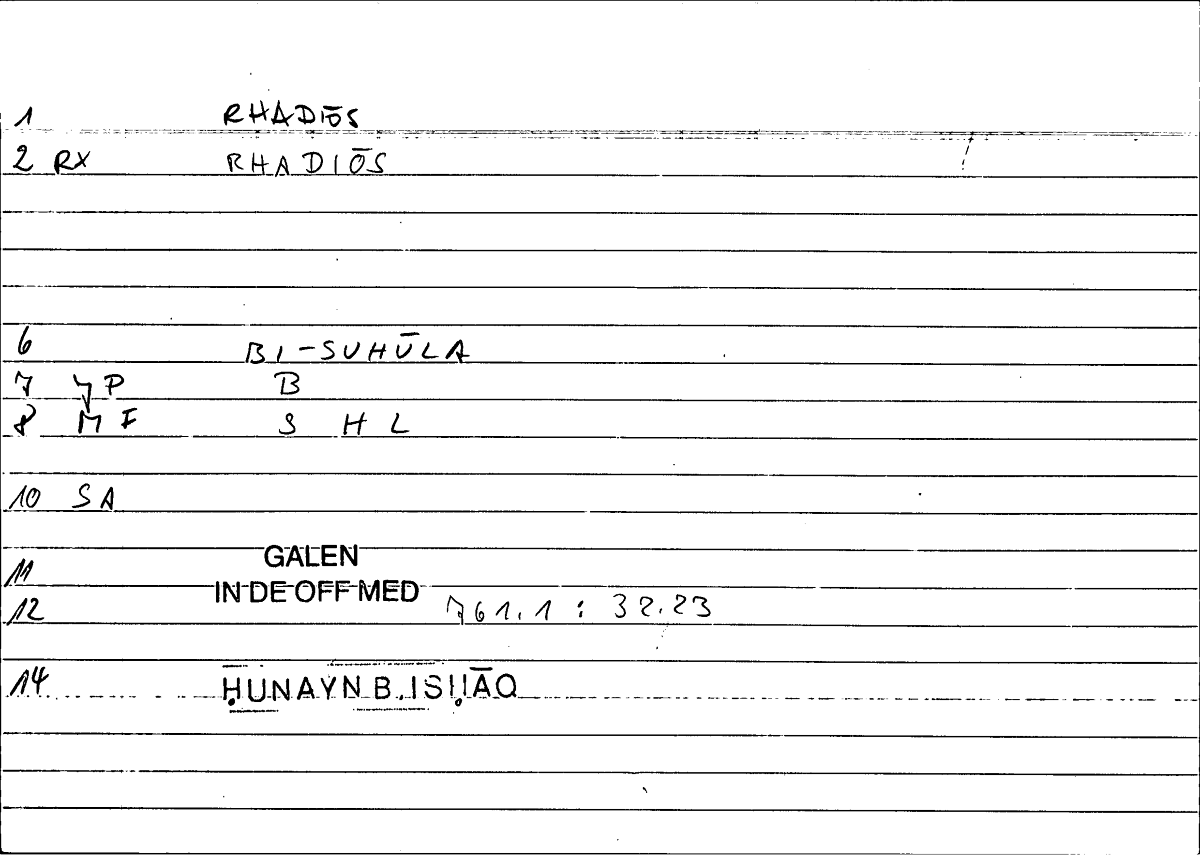 1 RHADIŌS
2 RX RHADIŌS
6 BI-SUHŪLA
7 P B
8 M F S H L
10 SA
11 GALEN
12 IN DE OFF MED 761.1 : 32.23
14 ḤUNAYN B. ISḤĀQ